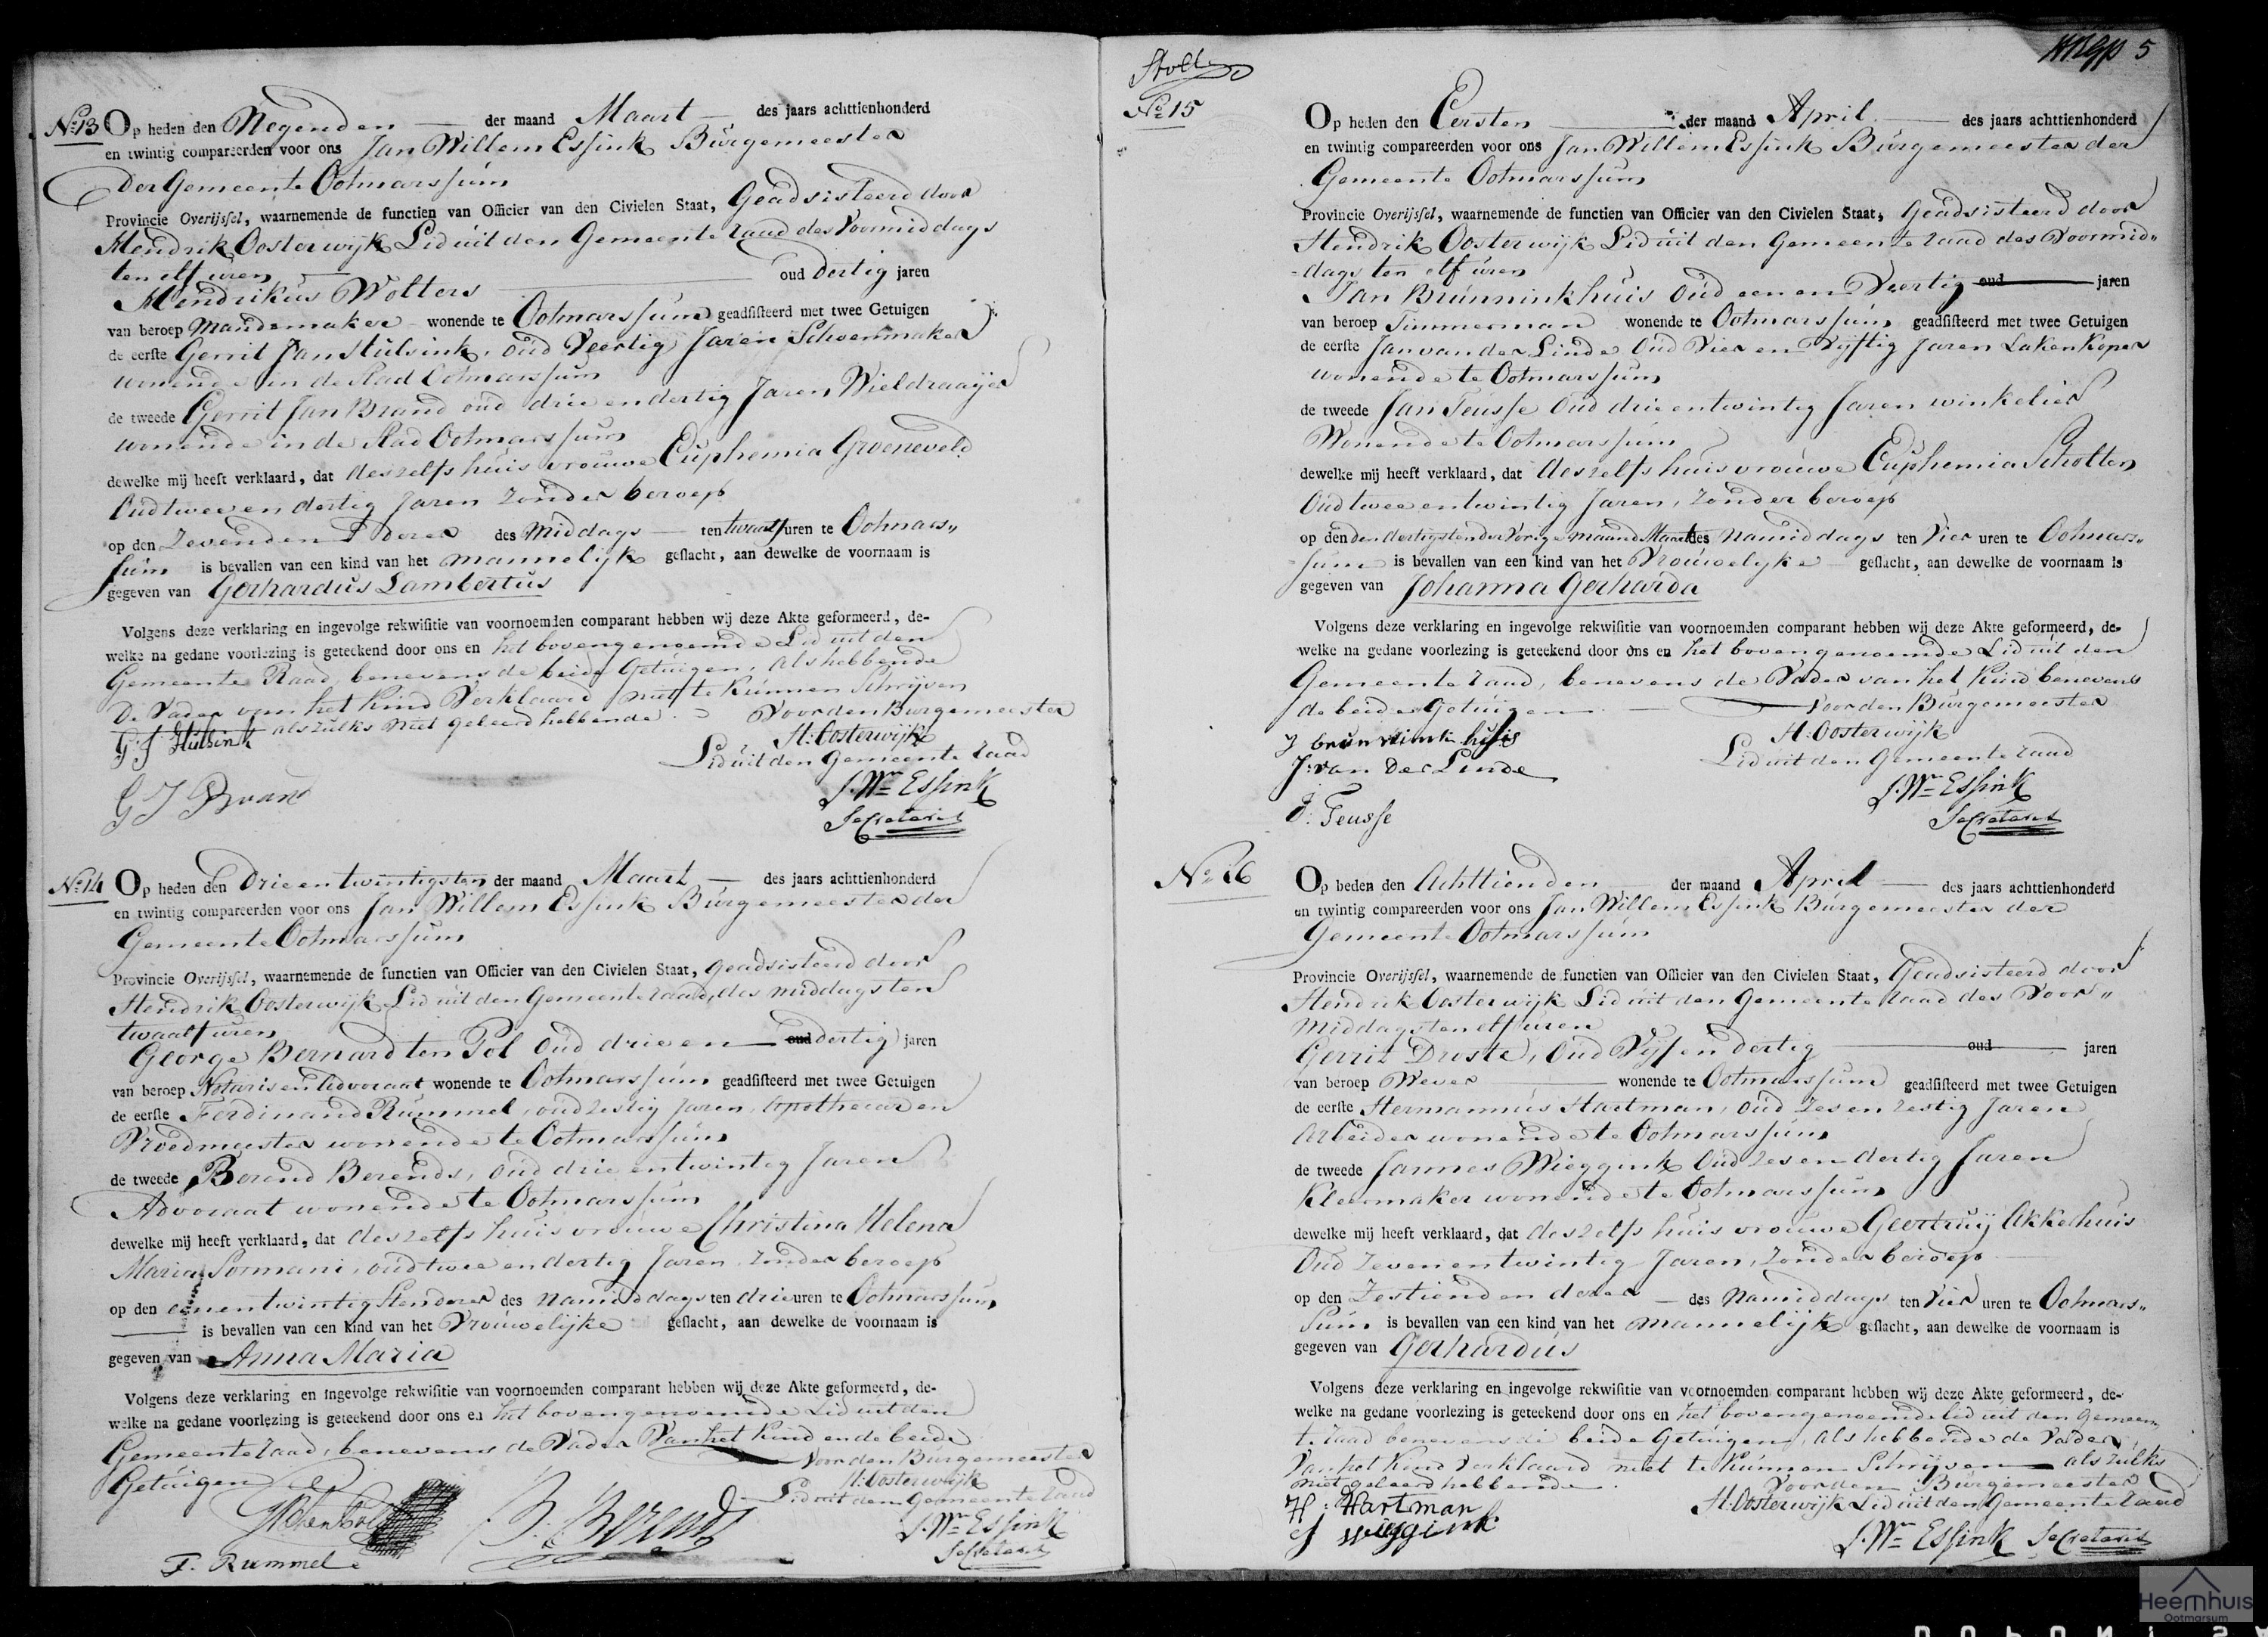 No. 13 Op heden den Negenden der maand Maart des jaars achttienhonderd
en twintig compareerden voor ons Jan Willem Essink Burgemeester
Der Gemeente Ootmarssum
Provincie Overijssel, waarnemende de functien van Officier van den Civielen Staat, Geadsisteerd door
Hendrik Oosterwijk Lid uit den Gemeente raad des Voormiddags
ten elf uren
Hendrikus Wolters oud Dertig jaren
van beroep Mandemaker wonende te Ootmarssum geadsisteerd met twee Getuigen
de eerste Gerrit Jan Hulsink, oud Veertig Jaren Schoenmaker
wonende in de Stad Ootmarssum
de tweede Gerrit Jan Brand oud drie en dertig Jaren Wieldraayer
wonende in de Stad Ootmarssum
dewelke mij heeft verklaard, dat deszelfs huisvrouwe Euphemia Groeneveld
Oud twee en dertig Jaren Zonder beroep
op den Zevenden Dezer des Middags ten twaalf uren te Ootmars„
sum is bevallen van een kind van het mannelijk geslacht, aan dewelke de voornaam is
gegeven van Gerhardus Lambertus
Volgens deze verklaring en ingevolge rekwisitie van voornoemden comparant hebben wij deze Akte geformeerd, de-
welke na gedane voorlezing is geteekend door ons en het bovengenoemde Lid uit den
Gemeente Raad, benevens de beide Getuigen, als hebbende
De Vader van het Kind Verklaard niet te Kunnen Schrijven
als zulks niet geleerd hebbende. Voor den Burgemeester
G. J. Hulsink H: Oosterwijk
Lid uit den Gemeente raad
G J Brand J. Wm Essink
Secretaris
No. 14 Op heden den Drie en twintigsten der maand Maart des jaars achttienhonderd
en twintig compareerden voor ons Jan Willem Essink Burgemeester der
Gemeente Ootmarssum
Provincie Overijssel, waarnemende de functien van Officier van den Civielen Staat, geadsisteerd door
Hendrik Oosterwijk Lid uit den Gemeente raad, des middags ten
twaalf uren
George Bernard ten Pol Oud drie en oud dertig jaren
van beroep Notaris en Advocaat wonende te Ootmarssum geadsisteerd met twee Getuigen
de eerste Ferdinand Rummel, oud zestig Jaren, Apothecar en
Vroedmeester wonende te Ootmarssum
de tweede Berend Berends, Oud drie en twintig Jaren
Advocaat wonende te Ootmarssum
dewelke mij heeft verklaard, dat deszelfs huisvrouwe Christina Helena
Maria Sormani, oud twee en dertig Jaren Zonder beroep
op den eenentwintigsten dezer des namiddags ten drie uren te Ootmarssum
is bevallen van een kind van het Vrouwelijke geslacht, aan dewelke de voornaam is
gegeven van Anna Maria
Volgens deze verklaring en ingevolge rekwisitie van voornoemden comparant hebben wij deze Akte geformeerd, de-
welke na gedane voorlezing is geteekend door ons en het bovengenoemde Lid uit den
Gemeente raad, benevens de Vader Van het Kind en de beide
Getuigen Voor den Burgemeester
H: Oosterwijk
Lid uit den Gemeente raad
B. Berends J. Wm Essink
F. Rummel Secretaris
5
No. 15
Op heden den Eersten der maand April des jaars achttienhonderd
en twintig compareerden voor ons Jan Willem Essink Burgemeester der
Gemeente Ootmarssum
Provincie Overijssel, waarnemende de functien van Officier van den Civielen Staat, Geadsisteerd door
Hendrik Oosterwijk Lid uit den Gemeente raad des Voormid„
dags ten elf uren
Jan Brunninkhuis Oud een en Veertig oud jaren
van beroep Timmerman wonende te Ootmarssum geadsisteerd met twee Getuigen
de eerste Jan van der Linde Oud Vier en Vijftig Jaren Lakenkoper
wonende te Ootmarssum
de tweede Jan Teusse Oud drie entwintig Jaren winkelier
Wonende te Ootmarssum
dewelke mij heeft verklaard, dat deszelfs huisvrouwe Euphemia Scholten
Oud twee entwintig Jaren, Zonder beroep
op den den dertigsten der Vorige maand Maart des namiddags ten Vier uren te Ootmars„
sum is bevallen van een kind van het Vrouwelyke geslacht, aan dewelke de voornaam is
gegeven van Johanna Gerharda
Volgens deze verklaring en ingevolge rekwisitie van voornoemden comparant hebben wij deze Akte geformeerd, de-
welke na gedane voorlezing is geteekend door ons en het bovengenoemde Lid uit den
Gemeente raad, benevens de Vader van het Kind benevens
de beide Getuigen Voor den Burgemeester
J brunninkhuis H: Oosterwijk
J: van Der Linde Lid uit den Gemeente raad
J. Wm Essink
J: Teusse Secretaris
No. 16 Op heden den Achttienden der maand April des jaars achttienhonderd
en twintig compareerden voor ons Jan Willem Essink Burgemeester der
Gemeente Ootmarssum
Provincie Overijssel, waarnemende de functien van Officier van den Civielen Staat, Geadsisteerd door
Hendrik Oosterwijk Lid uit den Gemeente raad des Voor„
Middags ten elf uren
Gerrit Droste, Oud Vijf en dertig oud jaren
van beroep Wever wonende te Ootmarssum geadsisteerd met twee Getuigen
de eerste Hermannus Hartman, Oud Zes en zestig Jaren
Arbeider wonende te Ootmarssum
de tweede Jannes Wieggink Oud Zes en dertig Jaren
Kleermaker wonende te Ootmarssum
dewelke mij heeft verklaard, dat deszelfs huisvrouwe Geertruij Akkerhuis
Oud Zeven entwintig Jaren, Zonder beroep
op den Zestienden dezer des Namiddags ten Vier uren te Ootmars„
Sum is bevallen van een kind van het mannelijk geslacht, aan dewelke de voornaam is
gegeven van Gerhardus
Volgens deze verklaring en ingevolge rekwisitie van voornoemden comparant hebben wij deze Akte geformeerd, de-
welke na gedane voorlezing is geteekend door ons en het bovengenoemde lid uit den Gemeen„
te raad benevens de beide Getuigen, als hebbende de Vader
Van het Kind Verklaard niet te Kunnen Schrijven als zulks
niet geleerd hebbende. Voor den Burgemeester
H: Hartman H: Oosterwijk Lid uit den Gemeente raad
J wieggink J. Wm Essink Secretaris
Heemhuis
Ootmarsum